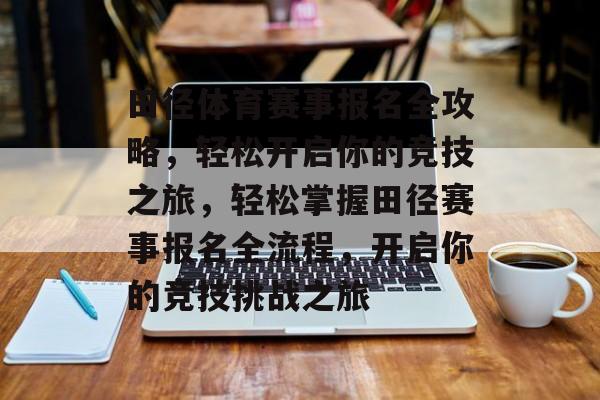 田径体育赛事报名全攻
略，轻松开启你的竞技
之旅，轻松掌握田径赛
事报名全流程，开启你
的竞技挑战之旅